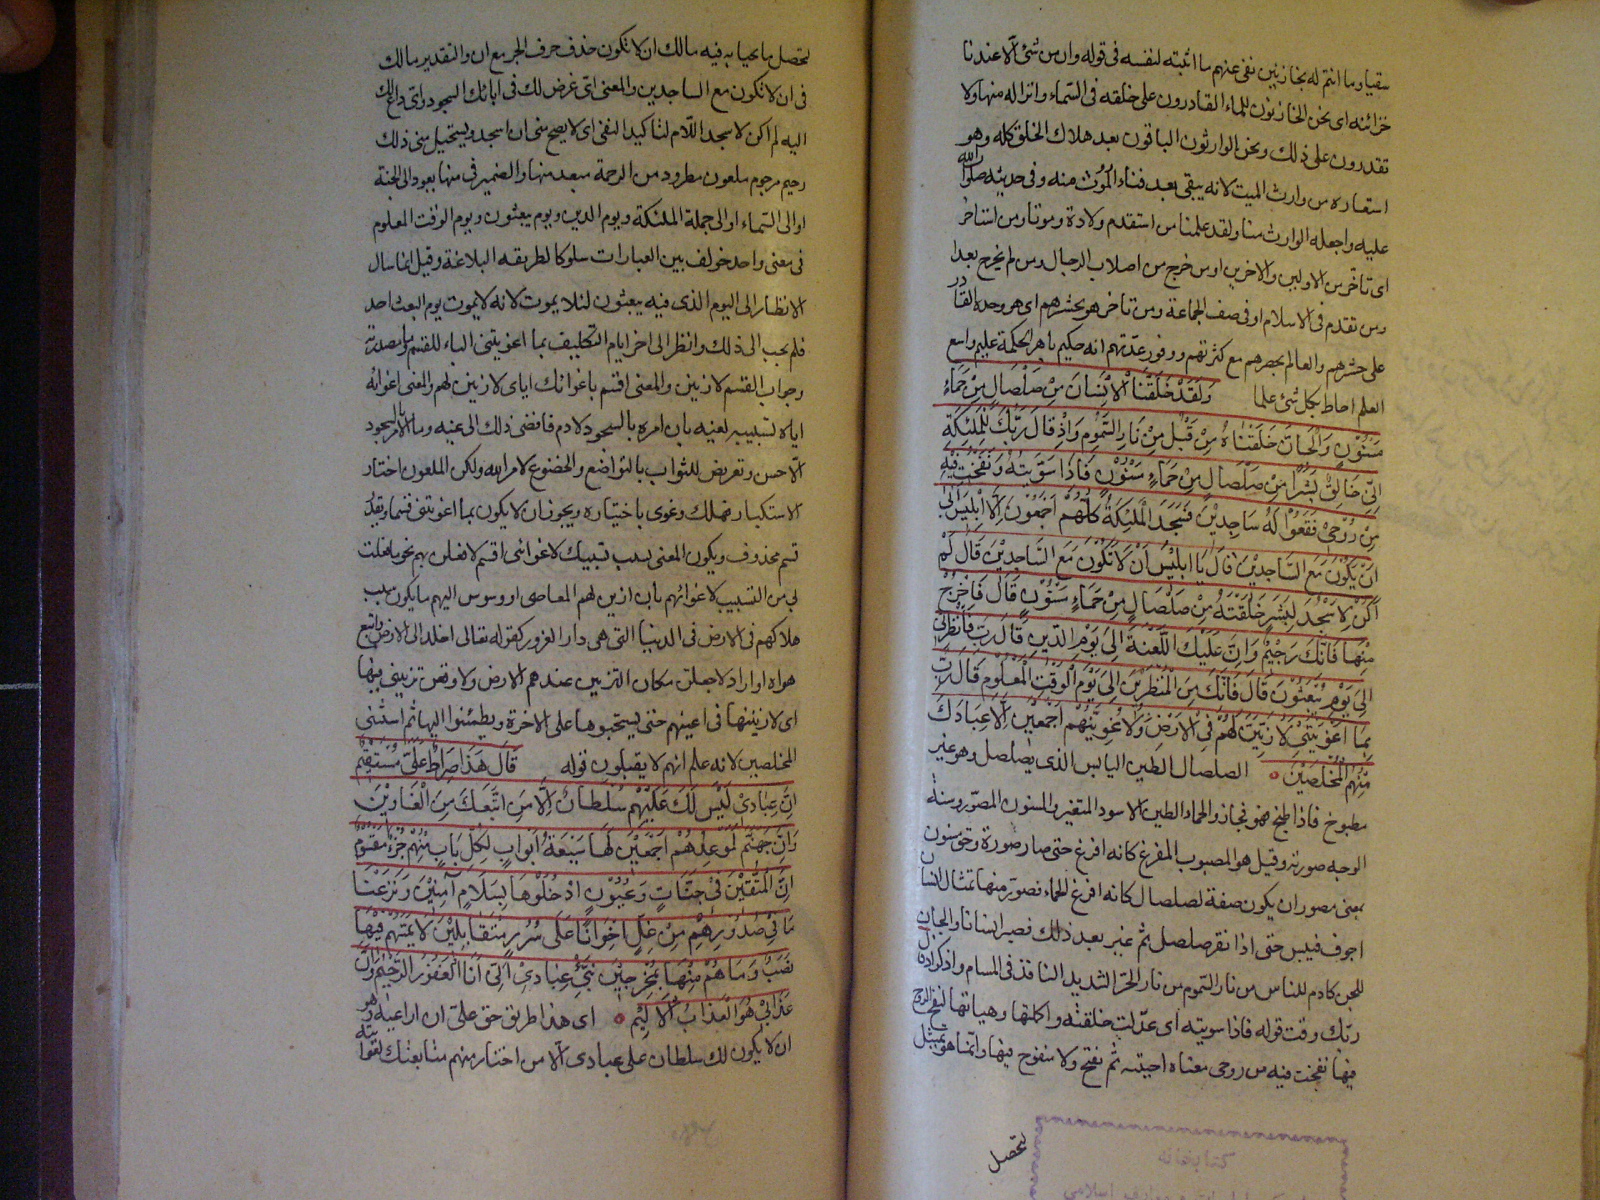 سقيا وما انتم له بخازنين نفى عنهم ما اثبته لنفسه فى قوله وان من شئ الا عندنا
خزائنه اى نحن الخازنون للماء القادرون على خلقه فى السماء وانزاله منها ولا
تقدرون على ذلك ونحن الوارثون الباقون بعد هلاك الخلق كله وهو
استعارة من وارث الميت لانه يبقى بعد فناء المورث منه وفى حديثه صلوات الله
عليه واجعله الوارث منا ولقد علمنا من استقدم ولادة وموتا ومن استاخر
اى تاخر من الاولين والاخرين او من خرج من اصلاب الرجال ومن لم يخرج بعد او
ومن تقدم فى الاسلام او فى صف الجماعة ومن تاخر هو يحشرهم اى هو وحده القادر
على حشرهم والعالم بحصرهم مع كثرتهم ووفور عدتهم انه حكيم باهر الحكمة عليم واسع
العلم احاط بكل شئ علما وَلَقَدْ خَلَقْنَا الْاِنْسَانَ مِنْ صَلْصَالٍ مِنْ حَمَاءٍ
مَسْنُوْنٍ وَالْجَانَّ خَلَقْنَاهُ مِنْ قَبْلُ مِنْ نَارِ السَّمُوْمِ وَاِذْ قَالَ رَبُّكَ لِلْمَلٰئِكَةِ
اِنِّى خَالِقٌ بَشَرًا مِنْ صَلْصَالٍ مِنْ حَمَاءٍ مَسْنُوْنٍ فَاِذَا سَوَّيْتُهُ وَنَفَخْتُ فِيْهِ
مِنْ رُوْحِىْ فَقَعُوْا لَهُ سَاجِدِيْنَ فَسَجَدَ الْمَلٰئِكَةُ كُلُّهُمْ اَجْمَعُوْنَ اِلَّا اِبْلِيْسَ اَبٰى
اَنْ يَكُوْنَ مَعَ السَّاجِدِيْنَ قَالَ يَا اِبْلِيْسُ اَنْ لَا تَكُوْنَ مَعَ السَّاجِدِيْنَ قَالَ لَمْ
اَكُنْ لِاَسْجُدَ لِبَشَرٍ خَلَقْتَهُ مِنْ صَلْصَالٍ مِنْ حَمَاءٍ مَسْنُوْنٍ قَالَ فَاخْرُجْ
مِنْهَا فَاِنَّكَ رَجِيْمٌ وَاِنَّ عَلَيْكَ اللَّعْنَةَ اِلٰى يَوْمِ الدِّيْنِ قَالَ رَبِّ فَاَنْظِرْنِىْ
اِلٰى يَوْمِ يُبْعَثُوْنَ قَالَ فَاِنَّكَ مِنَ الْمُنْظَرِيْنَ اِلٰى يَوْمِ الْوَقْتِ الْمَعْلُوْمِ قَالَ رَبِّ
بِمَا اَغْوَيْتَنِىْ لَاُزَيِّنَنَّ لَهُمْ فِى الْاَرْضِ وَلَاُغْوِيَنَّهُمْ اَجْمَعِيْنَ اِلَّا عِبَادَكَ
مِنْهُمُ الْمُخْلَصِيْنَ الصلصال الطين اليابس الذى يصلصل وهو غير
مطبوخ فاذا طبخ فهو فخار والحماء الطين الاسود المتغير والمسنون المصور وسنة
الوجه صورته وقيل هو المصبوب المفرغ كانه افرغ حتى صار صورة وحق مسنون
بمعنى مصور ان يكون صفة لصلصال كانه افرغ الحماء فصور منها تمثال انسان
اجوف فيبس حتى اذا نقر صلصل ثم غير بعد ذلك فصير انسانا والجان
للجن كادم للناس من نار السموم من نار الحر الشديد النافذ فى المسام واذكر اذ قال
ربك وقت قوله فاذا سويته اى عدلت خلقته واكملتها وهياتها لنفخ الروح
فيها نفخت فيه من روحى معناه احييته وثم نفخ ولا منفوخ فيها وانما هو تمثيل
لتحصل
كتابخانه
لتحصل ما يحيا به فيه مالك ان لا تكون حذف حرف الجر مع ان والتقدير مالك
فى ان لا تكون مع الساجدين والمعنى اى غرض لك فى ابائك السجود واى داع لك
اليه لم اكن لاسجد اللام لتاكيد النفى اى لا يصح منى ان اسجد ويستحيل منى ذلك
رجيم مرجوم ملعون مطرود من الرحمة مبعد منها والضمير فى منها يعود الى الجنة
او الى السماء او الى جملة الملئكة ويوم الدين ويوم يبعثون ويوم الوقت المعلوم
فى معنى واحد خولف بين العبارات سلوكا لطريقه البلاغة وقيل انما سال
الانظار الى اليوم الذى فيه يبعثون لئلا يموت لانه لا يموت يوم البعث احد
فلم يجب الى ذلك وانظر الى اخر ايام التكليف بما اغويتنى الباء للقسم وما مصدرية
وجواب القسم لازينن والمعنى اقسم باغوائك اياى لازينن لهم والمعنى اغوائه
اياه تسبيبه لغيه بان امره بالسجود لادم فافضى ذلك الى غيه وما الامر بالسجود
الا حسن وتعريض للثواب بالتواضع والخضوع لامر الله ولكن الملعون اختار
الاستكبار فهلك وغوى باختياره ويجوز ان لا يكون بما اغويتنى قسما ويقدر
قسم محذوف ويكون المعنى بسبب تسبيبك لاغوائى اقسم لافعلن بهم نحو ما فعلت
بى من التسبيب لاغوائهم بان ازين لهم المعاصى او وسوس اليهم ما يكون سبب
هلاكهم فى الارض فى الدنيا التى هى دار الغرور كقوله تعالى اخلد الى الارض واتبع
هواه او اراد لاجعلن مكان التزيين عندهم الارض ولاوقعن تزيينى فيها
اى لازيننها فى اعينهم حتى يستحبوها على الاخرة ويطمئنوا اليها ثم استثنى
المخلصين لانه علم انهم لا يقبلون قوله قَالَ هَذَا صِرَاطٌ عَلَىَّ مُسْتَقِيْمٌ
اِنَّ عِبَادِىْ لَيْسَ لَكَ عَلَيْهِمْ سُلْطَانٌ اِلَّا مَنِ اتَّبَعَكَ مِنَ الْغَاوِيْنَ
وَاِنَّ جَهَنَّمَ لَمَوْعِدُهُمْ اَجْمَعِيْنَ لَهَا سَبْعَةُ اَبْوَابٍ لِكُلِّ بَابٍ مِنْهُمْ جُزْءٌ مَقْسُوْمٌ
اِنَّ الْمُتَّقِيْنَ فِىْ جَنَّاتٍ وَعُيُوْنٍ اُدْخُلُوْهَا بِسَلَامٍ اٰمِنِيْنَ وَنَزَعْنَا
مَا فِىْ صُدُوْرِهِمْ مِنْ غِلٍّ اِخْوَانًا عَلٰى سُرُرٍ مُتَقَابِلِيْنَ لَا يَمَسُّهُمْ فِيْهَا
نَصَبٌ وَمَا هُمْ مِنْهَا بِمُخْرَجِيْنَ نَبِّئْ عِبَادِىْ اَنِّى اَنَا الْغَفُوْرُ الرَّحِيْمُ وَاَنَّ
عَذَابِىْ هُوَ الْعَذَابُ الْاَلِيْمُ اى هذا طريق حق على ان اراعيه وهو
ان لا يكون لك سلطان على عبادى الا من اختار منهم متابعتك لغوايته